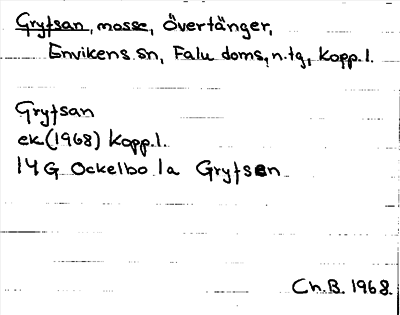 Grytsan, mosse, Övertänger,
Envikens sn, Falu doms, n. tg, Kopp. l.
Grytsan
ek (1968) Kopp. l.
14 G Ockelbo 1a Grytsen
Ch. B. 1968.